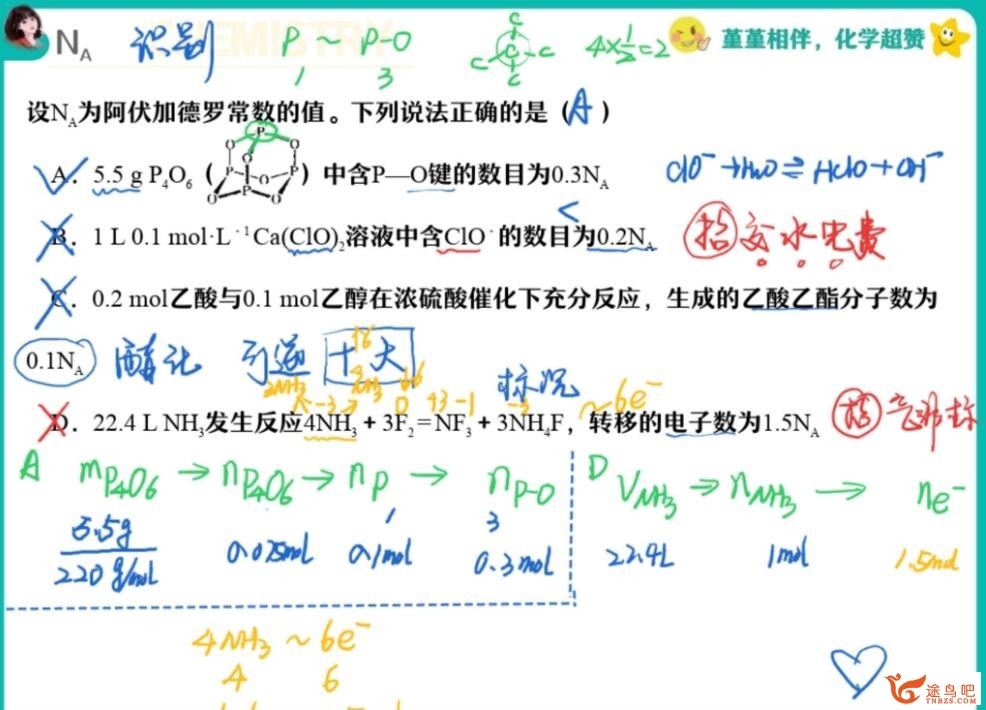 N_A 识别 P ~ P-O CHEMISTRY 4×½=2 堇堇相伴，化学超赞
1 3
C C C C C
设N_A为阿伏加德罗常数的值。下列说法正确的是（A）
A．5.5 g P₄O₆（）中含P—O键的数目为0.3N_A ClO⁻+H₂O⇌HClO+OH⁻
<
B．1 L 0.1 mol·L⁻¹Ca(ClO)₂溶液中含ClO⁻的数目为0.2N_A 掐 交水电费
C．0.2 mol乙酸与0.1 mol乙醇在浓硫酸催化下充分反应，生成的乙酸乙酯分子数为
0.1N_A 酯化 可逆 十大 标况 ~6e⁻
D．22.4 L NH₃发生反应4NH₃ + 3F₂ = NF₃ + 3NH₄F，转移的电子数为1.5N_A
A mP₄O₆ → nP₄O₆ → nP → nP-O
1 3
5.5g
220 g/mol 0.025mol 0.1mol 0.3mol
D V_NH₃ → n_NH₃ → ne⁻
22.4L 1mol 1.5mol
4NH₃ ~ 6e⁻
4 6
途鸟吧
TNBZS.COM